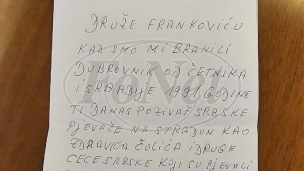 DRUŽE FRANKOVIĆU
KAD SMO MI BRANILI
DUBROVNIK OD ČETNIKA
I SRBADIJE 1991. GODINE
TI DANAS POZIVAŠ SRBSKE
PJEVAČE NA STRADUN KAO
ZDRAVKA ČOLIĆA I DRUGE
CECE SRBSKE KOJI SU PJEVALI
FoNet